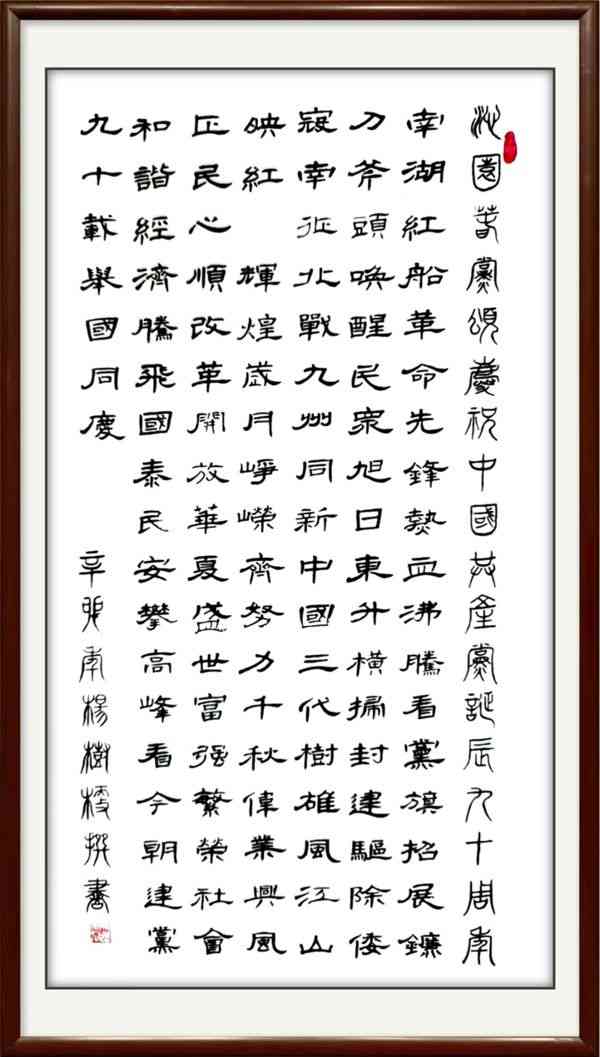 沁園春黨頌慶祝中國共產黨誕辰九十周年
南湖紅船革命先鋒熱血沸騰看黨旗招展鐮
刀斧頭喚醒民衆旭日東升橫掃封建驅除倭
寇南征北戰九州同新中國三代樹雄風江山
映紅 輝煌歲月崢嶸齊努力千秋偉業興風
正民心順改革開放華夏盛世富强繁榮社會
和諧經濟騰飛國泰民安攀高峰看今朝建黨
九十載舉國同慶
辛卯年楊樹枝撰書